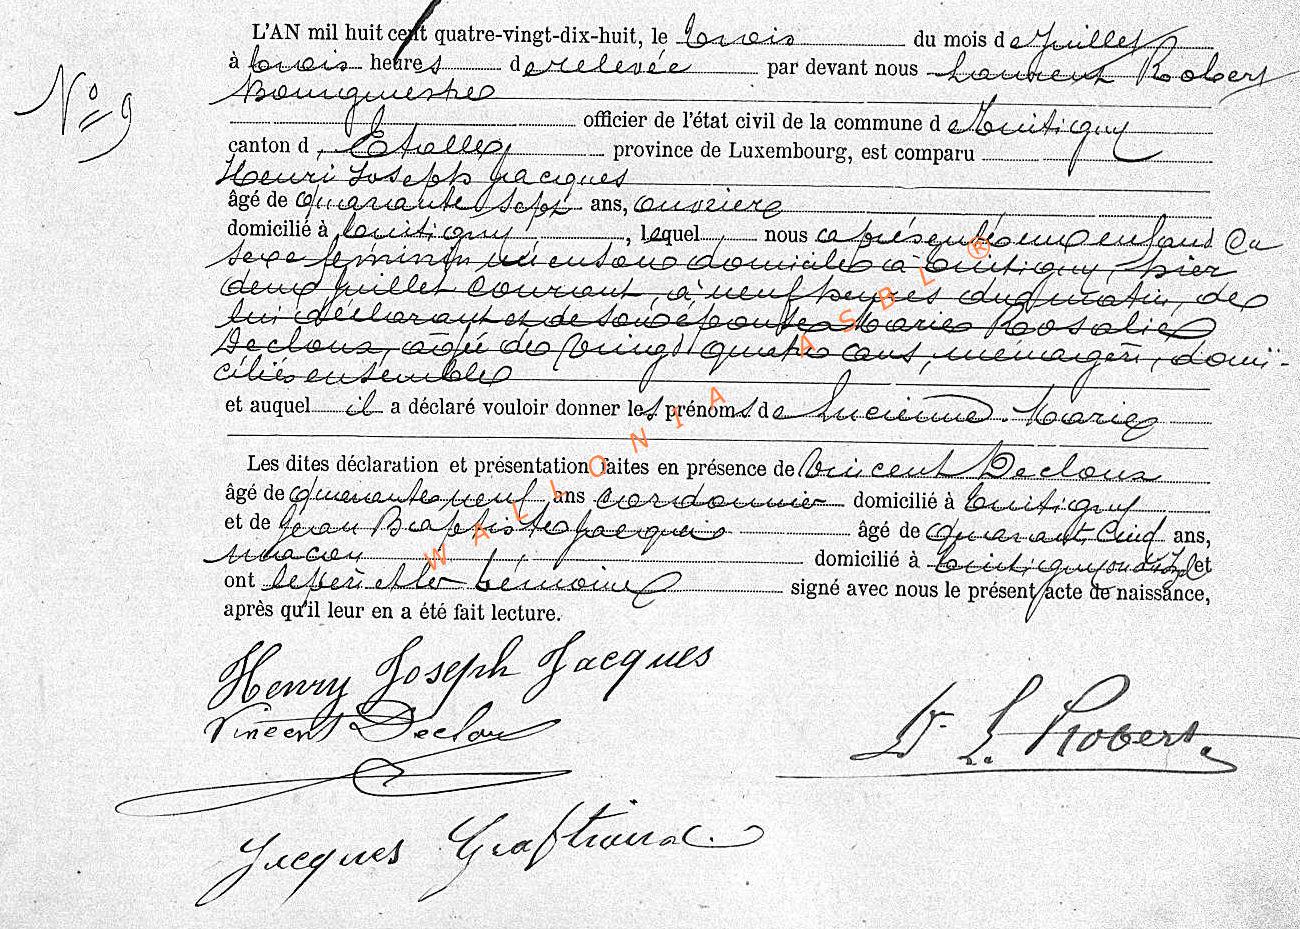 L'AN mil huit cent quatre-vingt-dix-huit, le trois du mois de Juillet
à trois heures de relevée par devant nous Laurent Robert
Bourgmestre
N° 9
officier de l'état civil de la commune d
canton d Etalle, province de Luxembourg, est comparu
Henri Joseph Jacques
âgé de quarante sept ans, ouvrier
domicilié à , lequel nous a présenté un enfant du
sexe féminin né en son domicile à , hier
deux juillet courant, à neuf heures du matin, de
lui déclarant et de son épouse Marie Rosalie
Decloux, agée de vingt quatre ans, ménagère, domi-
ciliés ensemble
et auquel il a déclaré vouloir donner les prénoms de Lucienne Marie
Les dites déclaration et présentation faites en présence de Vincent Decloux
âgé de quarante neuf ans cordonnier domicilié à
et de Jean Baptiste Jacques âgé de quarante cinq ans,
domicilié à et
ont le père et les témoins signé avec nous le présent acte de naissance,
après qu'il leur en a été fait lecture.
WALLONIA ASBL ®
Henry Joseph Jacques
Vincent Decloux
Dr L. Robert.
Jacques